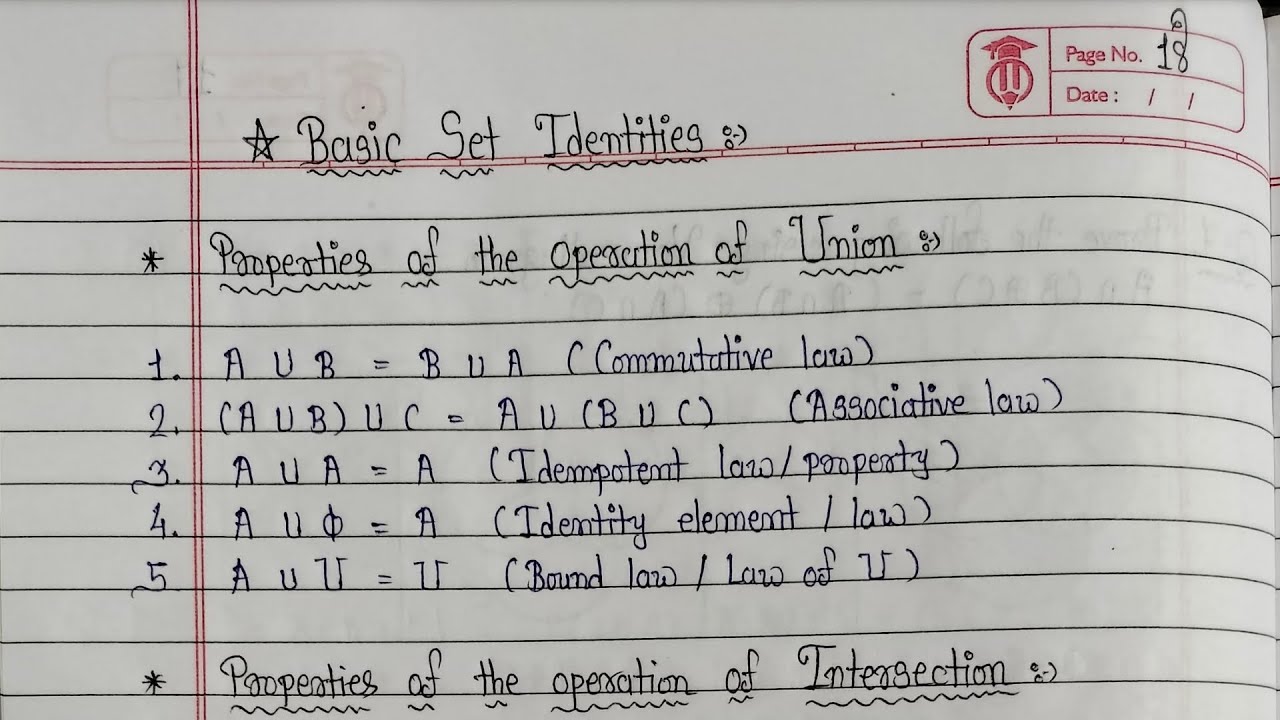 Page No. 18
Date : / /
☆ Basic Set Identities :-)
* Properties of the operation of Union :-)
1. A U B = B U A (Commutative law)
2. (A U B) U C = A U (B U C) (Associative law)
3. A U A = A (Idempotent law/property)
4. A U ϕ = A (Identity element / law)
5 A U U = U (Bound law / Law of U)
* Properties of the operation of Intersection :-)